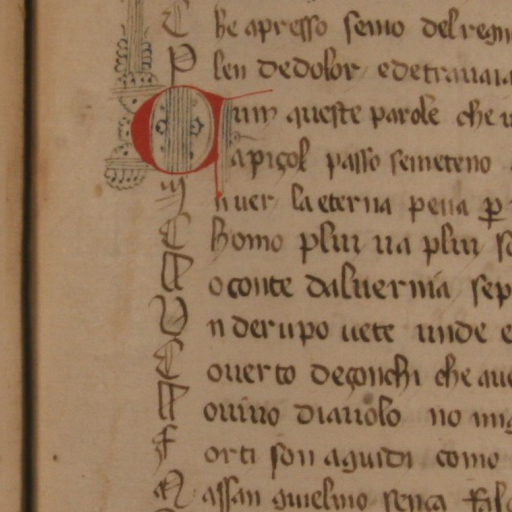 C he apresso semo del regn
P len de dolor e de trauaia
Q um queste parole che u
a piçol passo semeteno
M uer la eterna pena p
C homo plui ua plui so
L o conte daluernia sep
V n derupo uete unde e
C ouerto de gonchi che aue
L o uiuo diauolo no mig
F orti son aguidi como
N assan guielmo sença fal